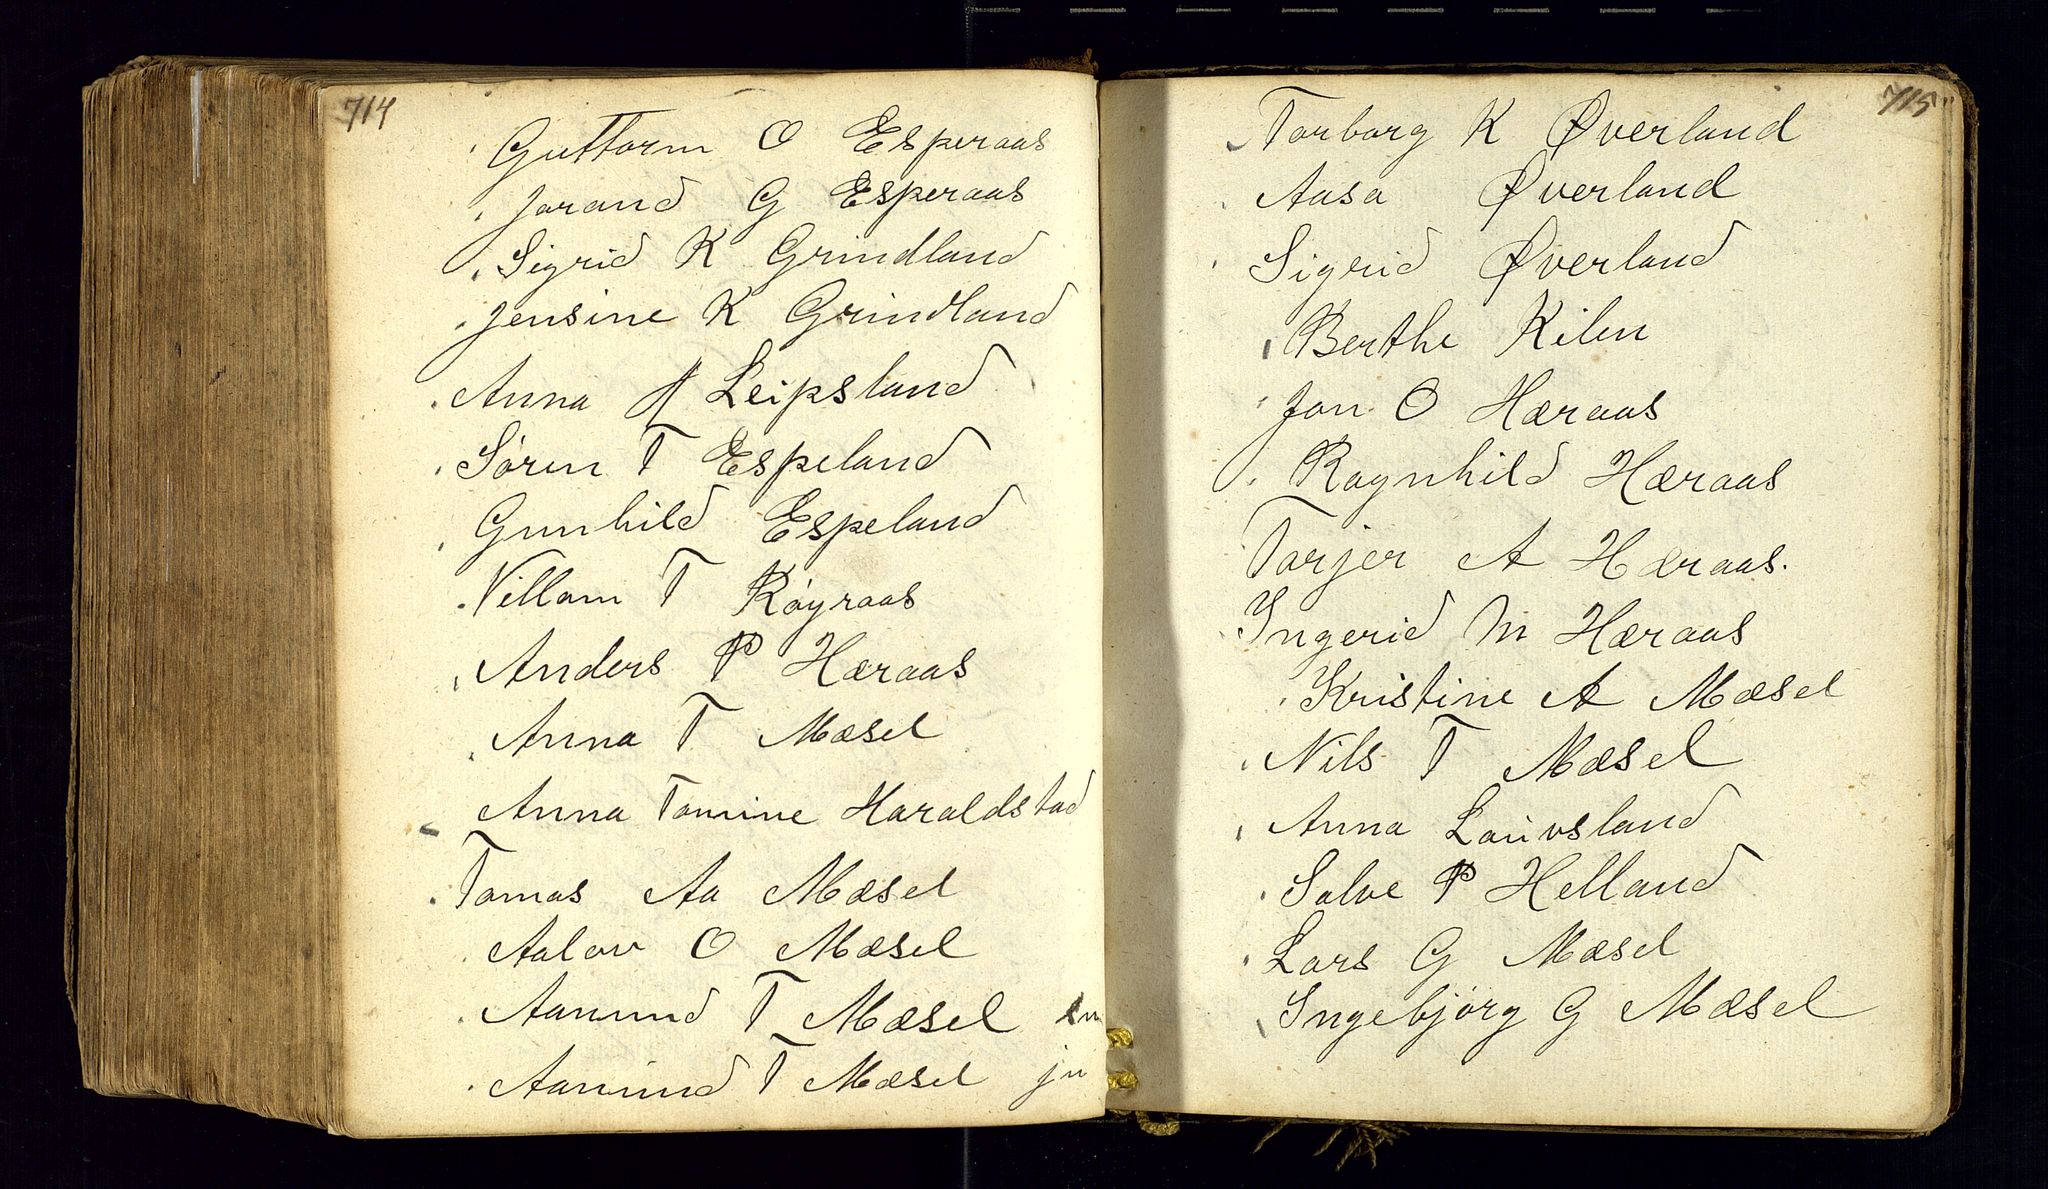 714
Guttorm O Esperaas
Jorand G Esperaas
Sigrid K Grindland
Jensine K Grindland
Anna Leipsland
Søren T Espeland
Gunhild Espeland
Villum T Røyraas
Anders P Hæraas
Anna T Mæsel
Anna Tomine Haraldstad
Tomas Aa Mæsel
Aalov O Mæsel
Aanund T Mæsel
Aanund T Mæsel ju
715
Torborg K Øverland
Aasa Øverland
Sigrid Øverland
Berthe Kilen
Jon O Hæraas
Ragnhild Hæraas
Torjer A Hæraas.
Ingerid M Hæraas
Kristine A Mæsel
Nils T Mæsel
Anna Lauvsland
Salve P Helland
Lars G Mæsel
Ingebjørg G Mæsel